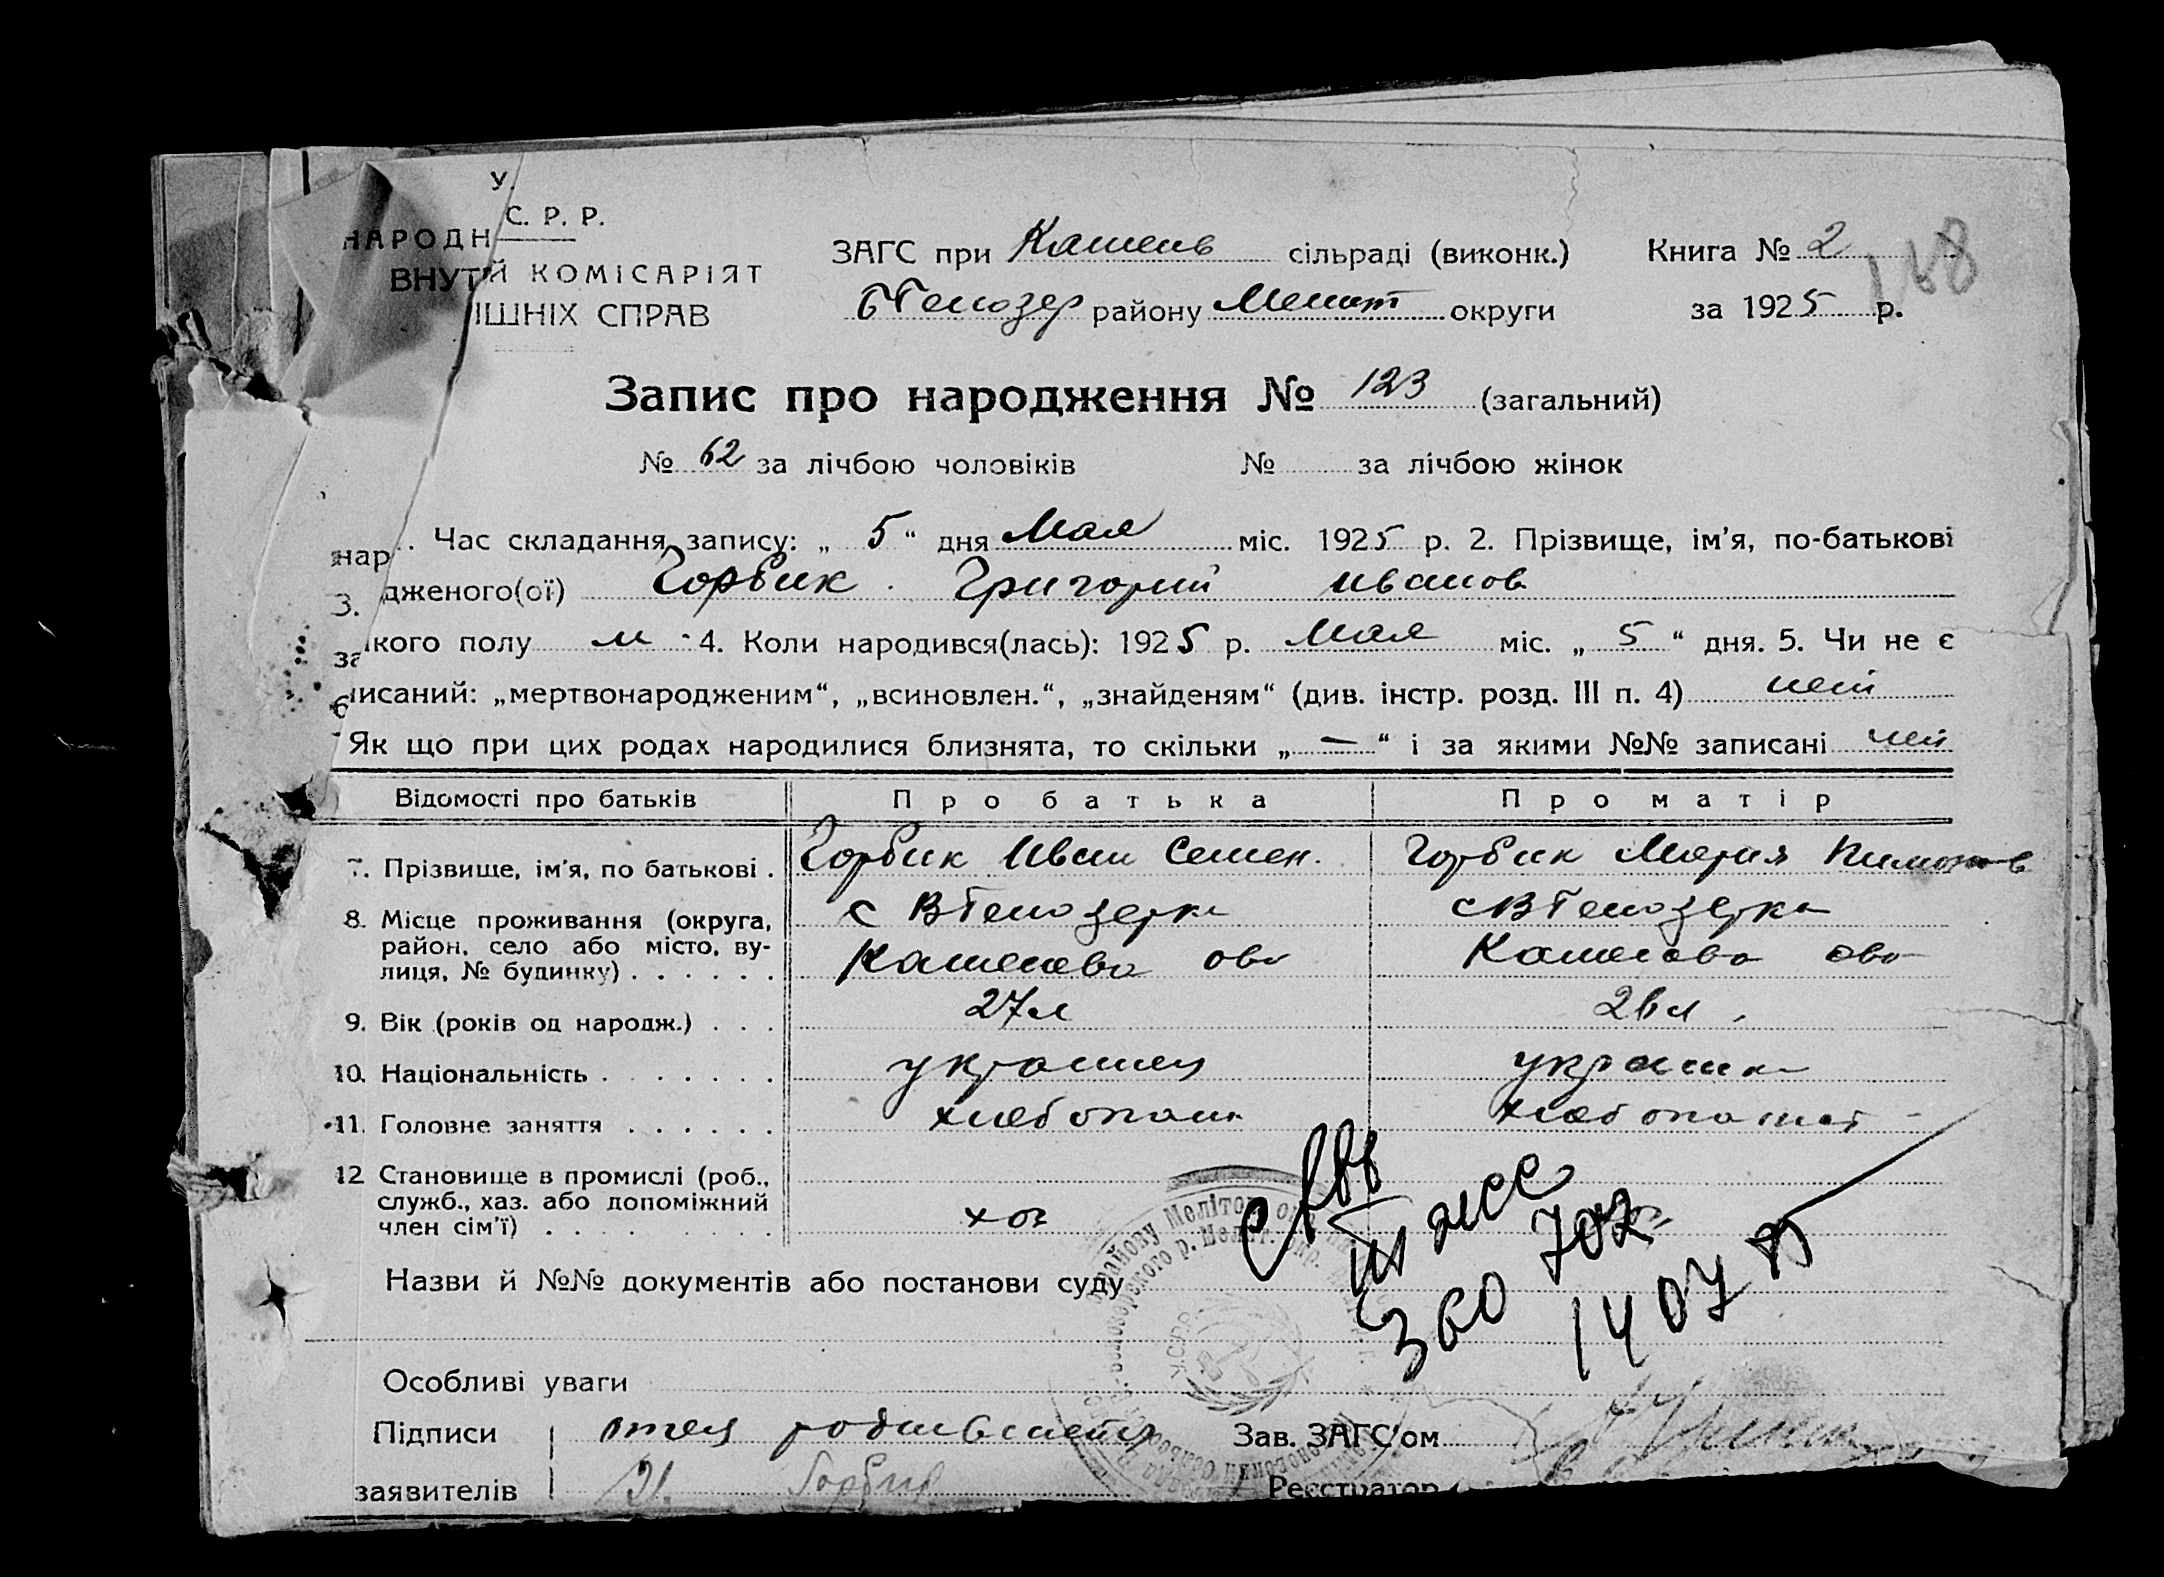 У. С. Р. Р.
НАРОДНІЙ КОМІСАРІЯТ
ВНУТРІШНІХ СПРАВ
ЗАГС при Каменв сільраді (виконк.) Книга № 2
168
району Мелит округи за 1925 р.
Запис про народження № 123 (загальний)
№ 62 за лічбою чоловіків № за лічбою жінок
Час складання запису: „ 5 “ дня Мая міс. 1925 р. 2. Прізвище, ім’я, по-батькові
народженого(ої) Горбик Григорий иванов
3. якого полу м 4. Коли народився(лась): 1925 р. Мая міс. „ 5 “ дня. 5. Чи не є
записаний: „мертвонародженим“, „всиновлен.“, „знайденям“ (див. інстр. розд. III п. 4) нет
6. Як що при цих родах народилися близнята, то скільки „ — “ і за якими №№ записані нет
Відомості про батьків Про батька Про матір
7. Прізвище, ім’я, по батькові . Горбик Иван Семен. Горбик Мария
8. Місце проживання (округа, с В Белозерка с В Белозерка
район, село або місто, ву-
лиця, № будинку) . . . . . . Каменева Каменева
9. Вік (років од народж.) . . . 27 л
10. Національність . . . . . . . украинец украинка
11. Головне заняття . . . . . . хлебопаш хлебопашест
12. Становище в промислі (роб.,
служб., хаз. або допоміжний
член сім’ї) . . . . . . . . . хоз
Назви й №№ документів або постанови суду
Особливі уваги
Підписи отец родившегося Зав. ЗАГС’ом
заявителів И. Горбик Реєстратор